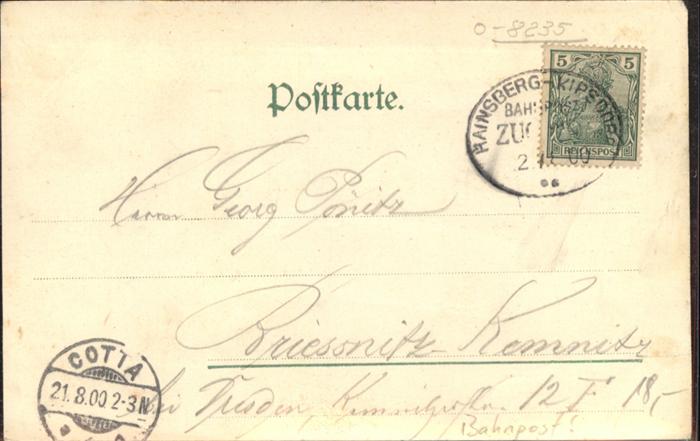 0-8235
5 5
REICHSPOST
HAINSBERG-KIPSDORF
BAHNPOST
ZUG
Postkarte.
Herrn Georg Pönitz
Briessnitz-Kemnitz
COTTA
21.8.00.2-3N
bei Dresden, 12 I 18,-
Bahnpost!